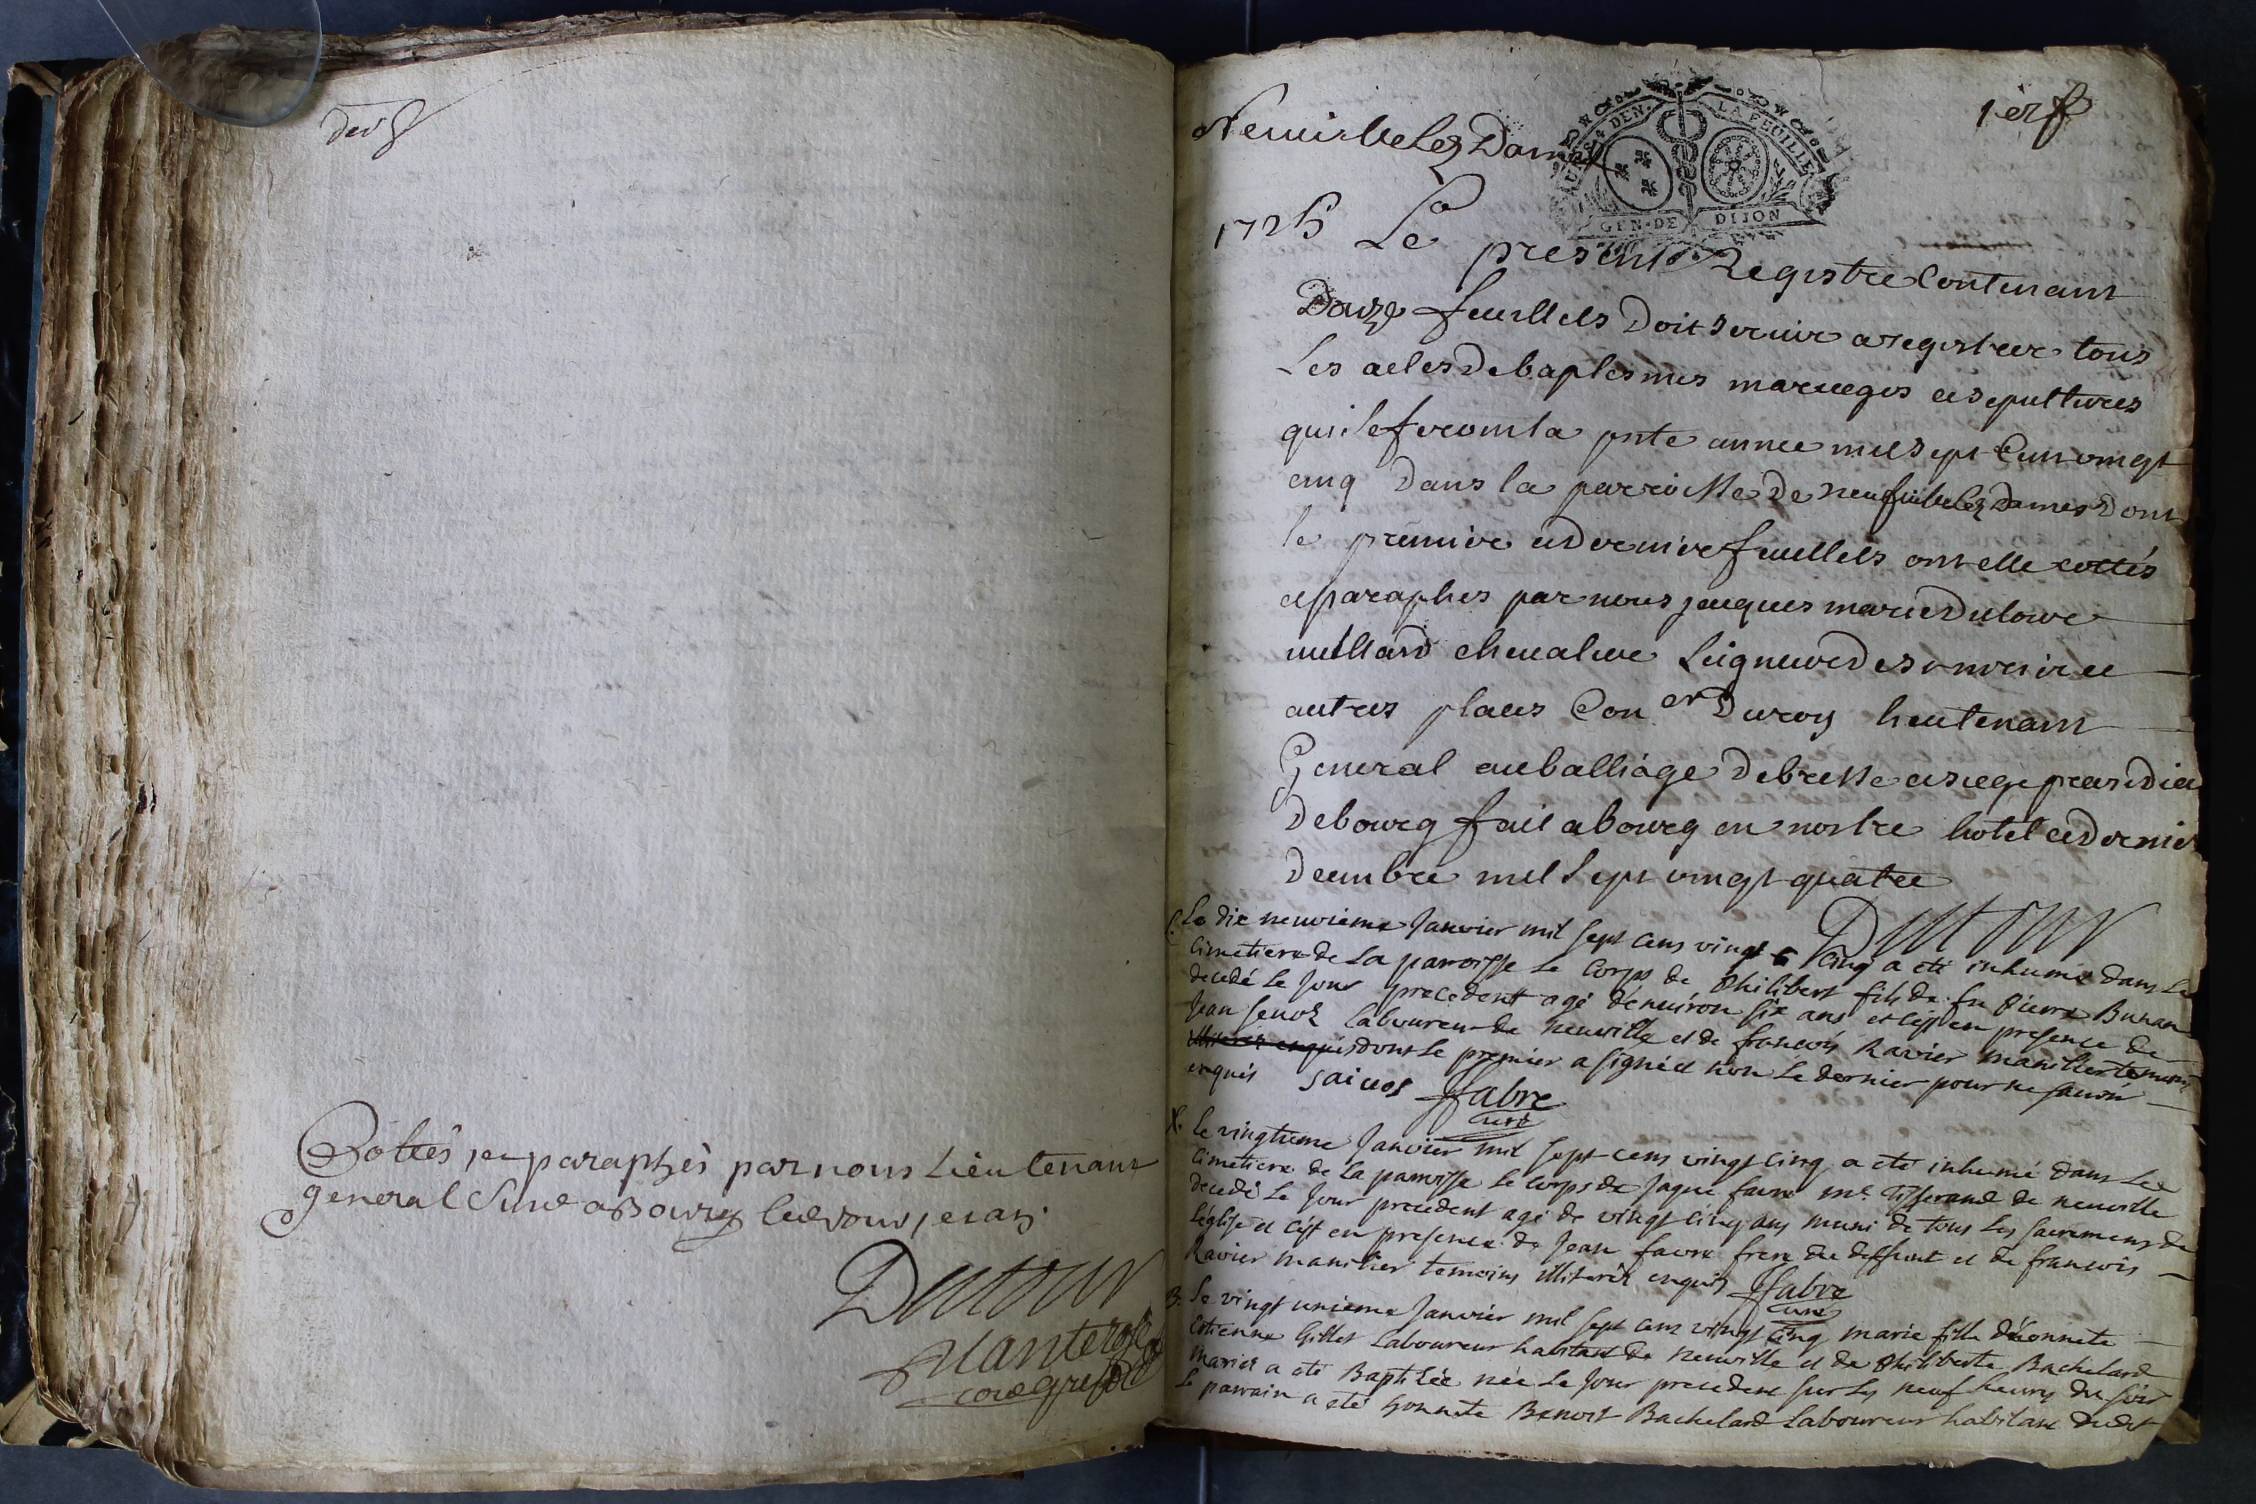 der f
Cottés, et paraphés par nous Lieutenant
general Susd a Bourg lesd jour, et an;
Dutour
Nanterol
comgreff
Neuuille Les Dames
1er f
AU 4 DEN. LA FEUILLE
GEN. DE DIJON
1725 Le present Registre Contenant
Douze feuillets Doit seruire a registrer tous
Les actes De baptesmes mariages et sepultures
qui se feront la pnte année mil sept Cent vingt
cinq Dans la parroisse De neufuille les Dames Dont
le premier et dernier feuillets ont esté cottés
et paraphés par nous jacques marie Dutour
uuillard cheualier Seigneur de st nizier et
autres places Coner Du roy lieutenant
General au balliage De bresse et siege presidial
De bourg fait a bourg en nostre hotel ce dernier
Decembre mil sept vingt quatre
Dutour
S. Le dix neuvieme Janvier mil sept cens vingt cinq a eté inhumé dans Le
Cimetiere de La parroisse Le Corps de Philibert fils de feu Pierre Buran
decedé Le Jour precedent agé d'enuiron six ans et c'est en presence de
Jean Senoz Laboureur de neuville et de francois Ravier manillier temoins
dont Le premier a signé et non Le dernier pour ne sauoir
enquis Saiuos ffabre
curé
S. Le vingtieme Janvier mil sept cens vingt cinq a eté inhumé dans Le
Cimetiere de La parroisse Le Corps de Jaque favre me Tisserand de neuville
decedé Le Jour precedent agé de vingt cinq ans muni de tous Les sacremens de
L'église et c'est en presence de Jean favre frere du deffunt et de francois
Ravier manillier temoins illiterés enquis ffabre
curé
B. Le vingt unieme Janvier mil sept cens vingt cinq marie fille d'honnete
Estienne Gillet Laboureur habitant de neuville et de Philiberte Bachelard
mariés a eté Baptisée née Le Jour precedent sur Les neuf heures du soir
Le parrain a eté honnete Benoit Bachelard Laboureur habitant dudt